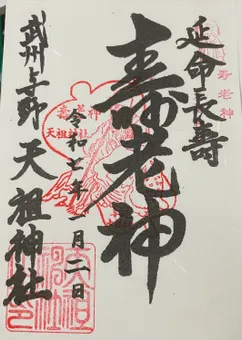 延命長壽
寿老神
壽老神
令和七年一月二日
壽老神
天祖神社
武州上野 天祖神社